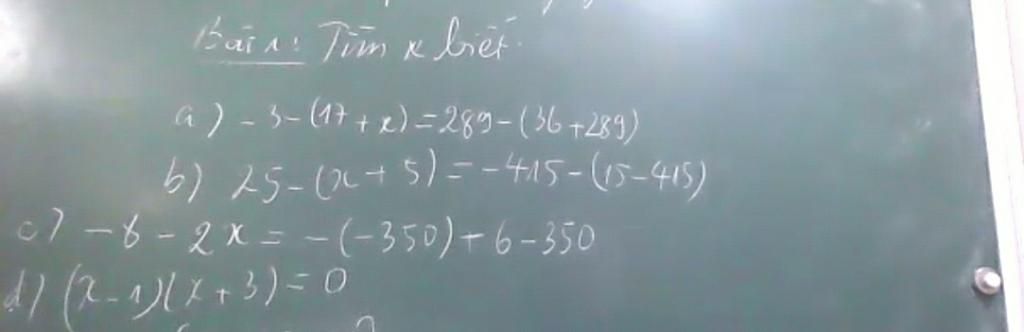 Bài 1: Tìm x biết.
a) -3-(17+x)=289-(36+289)
b) 25-(x+5)=-415-(15-415)
c) -8-2x=-(-350)+6-350
d) (x-1)(x+3)=0